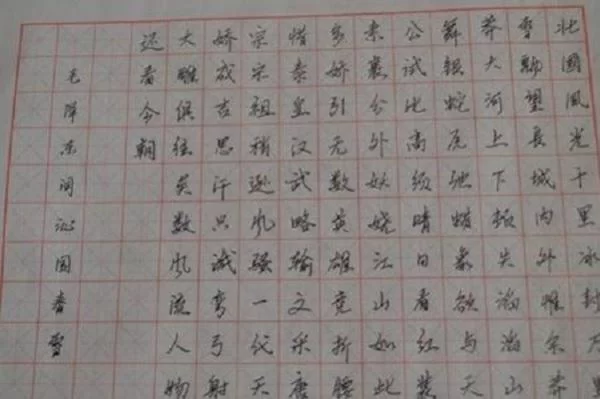 北国风光千里冰封万里
雪飘望長城内外惟余莽
莽大河上下顿失滔滔山
舞银蛇原驰蜡象欲与天
公试比高须晴日看红装
素裹分外妖娆江山如此
多娇引无数英雄竞折腰
惜秦皇汉武略输文采唐
宗宋祖稍逊风骚一代天
娇成吉思汗只识弯弓射
大雕俱往矣数风流人物
还看今朝
毛泽东词沁园春雪